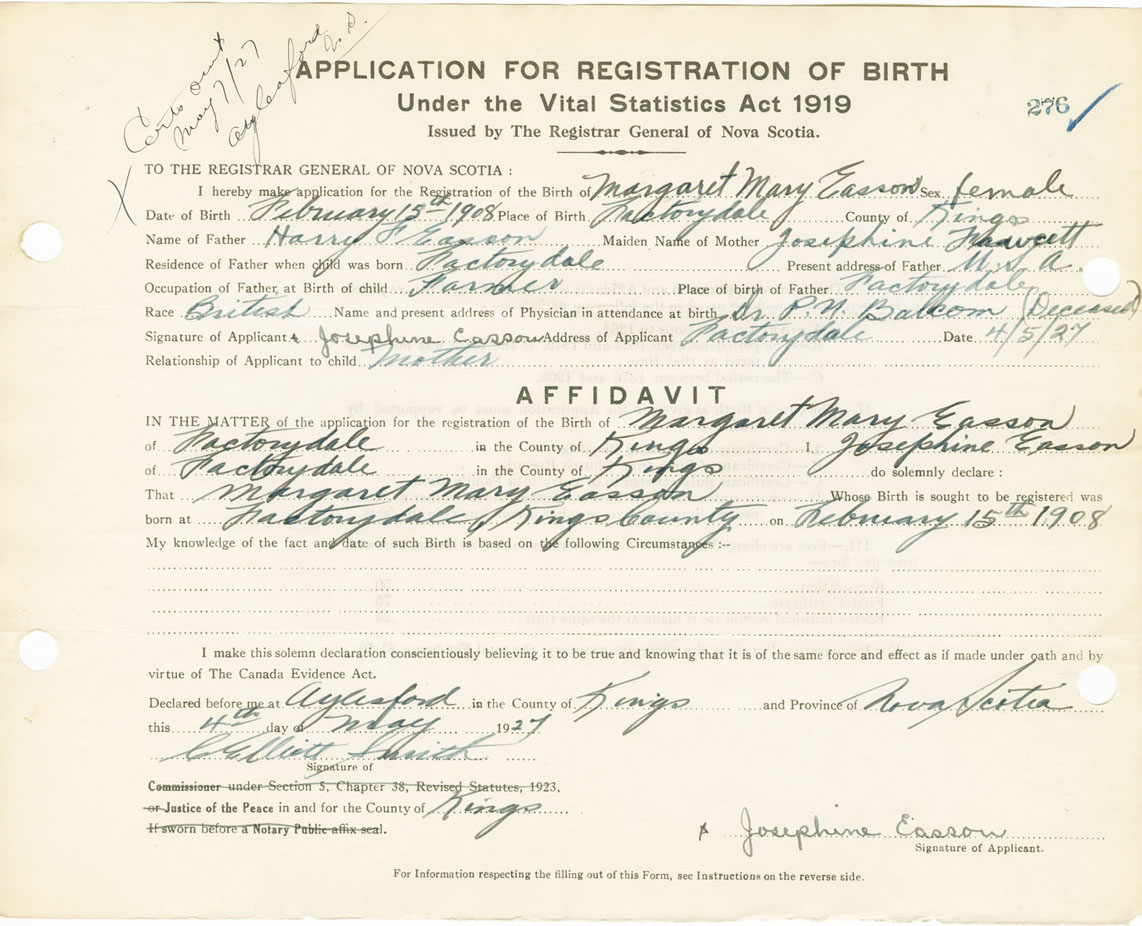 Certs sent
May 7/27
Aylesford
N.S.
APPLICATION FOR REGISTRATION OF BIRTH
Under the Vital Statistics Act 1919
276
Issued by The Registrar General of Nova Scotia.
TO THE REGISTRAR GENERAL OF NOVA SCOTIA :
I hereby make application for the Registration of the Birth of Margaret Mary Easson Sex female
Date of Birth February 15th 1908 Place of Birth Factorydale County of Kings
Name of Father Harry F Easson Maiden Name of Mother Josephine Fawcett
Residence of Father when child was born Factorydale Present address of Father U.S.A.
Occupation of Father at Birth of child Farmer Place of birth of Father Factorydale
Race British Name and present address of Physician in attendance at birth Dr. P. N. Balcom (Deceased)
Signature of Applicant x Josephine Easson Address of Applicant Factorydale Date 4/5/27
Relationship of Applicant to child Mother
AFFIDAVIT
IN THE MATTER of the application for the registration of the Birth of Margaret Mary Easson
of Factorydale in the County of Kings I, Josephine Easson
of Factorydale in the County of Kings do solemnly declare :
That Margaret Mary Easson Whose Birth is sought to be registered was
born at Factorydale, Kings County on February 15th 1908
My knowledge of the fact and date of such Birth is based on the following Circumstances :--
I make this solemn declaration conscientiously believing it to be true and knowing that it is of the same force and effect as if made under oath and by
virtue of The Canada Evidence Act.
Declared before me at Aylesford in the County of Kings and Province of Nova Scotia
this 4th day of May 1927
C Elliott Smith
Signature of
Commissioner under Section 5, Chapter 38, Revised Statutes, 1923,
or Justice of the Peace in and for the County of Kings
If sworn before a Notary Public affix seal.
x Josephine Easson
Signature of Applicant.
For Information respecting the filling out of this Form, see Instructions on the reverse side.